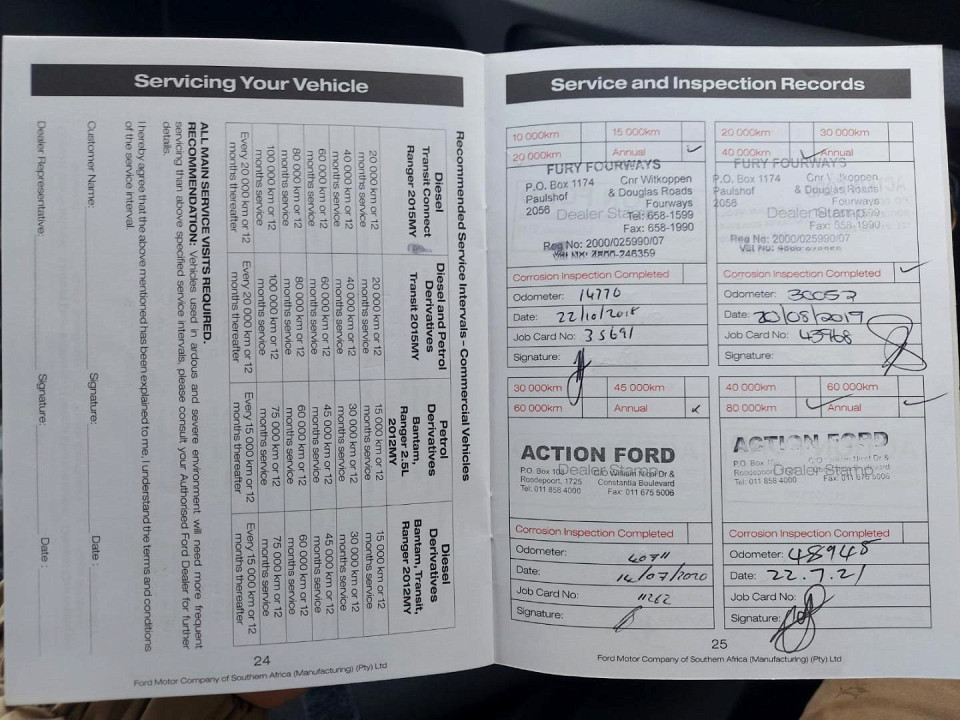 Servicing Your Vehicle
Recommended Service Intervals - Commercial Vehicles
Diesel
Transit Connect
Ranger 2015MY
20 000 km or 12
months service
40 000 km or 12
months service
60 000 km or 12
months service
80 000 km or 12
months service
100 000 km or 12
months service
Every 20 000 km or 12
months thereafter
Diesel and Petrol
Derivatives
Transit 2015MY
20 000 km or 12
months service
40 000 km or 12
months service
60 000 km or 12
months service
80 000 km or 12
months service
100 000 km or 12
months service
Every 20 000 km or 12
months thereafter
Petrol
Derivatives
Bantam,
Ranger 2.5L
2012MY
15 000 km or 12
months service
30 000 km or 12
months service
45 000 km or 12
months service
60 000 km or 12
months service
75 000 km or 12
months service
Every 15 000 km or 12
months thereafter
Diesel
Derivatives
Bantam, Transit,
Ranger 2012MY
15 000 km or 12
months service
30 000 km or 12
months service
45 000 km or 12
months service
60 000 km or 12
months service
75 000 km or 12
months service
Every 15 000 km or 12
months thereafter
ALL MAIN SERVICE VISITS REQUIRED.
RECOMMENDATION: Vehicles used in ardous and severe environment will need more frequent
servicing than above specified service intervals, please consult your Authorised Ford Dealer for further
details.
I hereby agree that the above mentioned has been explained to me, I understand the terms and conditions
of the service interval.
Customer Name: Signature: Date :
Dealer Representative: Signature: Date :
24
Ford Motor Company of Southern Africa (Manufacturing) (Pty) Ltd
Service and Inspection Records
10 000km 15 000km
20 000km Annual ✓
FURY FOURWAYS
P.O. Box 1174 Cnr Witkoppen
Paulshof & Douglas Roads
2056 Fourways
Dealer Stamp
Tel: 658-1599
Fax: 658-1990
Reg No: 2000/025990/07
Vat No: 4800-246359
Corrosion Inspection Completed
Odometer: 14770
Date: 22/10/2018
Job Card No: 35691
Signature:
20 000km 30 000km
40 000km ✓ Annual
FURY FOURWAYS
P.O. Box 1174
Paulshof & Douglas Roads
2056 Fourways
Dealer Stamp
Reg No: 2000/025990/07
Corrosion Inspection Completed ✓
Odometer: 30052
Date: 20/05/2019
Job Card No: 43968
Signature:
30 000km 45 000km
60 000km Annual ✓
ACTION FORD
Dealer Stamp
Roodepoort, 1725 Constantia Boulevard
Tel: 011 858 4000 Fax: 011 675 5006
Corrosion Inspection Completed
Odometer: 40711
Date: 14/07/2020
Job Card No: 11262
Signature:
40 000km 60 000km
80 000km ✓ Annual ✓
ACTION FORD
Dealer Stamp
Tel: 011 858 4000
Corrosion Inspection Completed
Odometer: 48945
Date: 22.7.21
Job Card No:
Signature:
25
Ford Motor Company of Southern Africa (Manufacturing) (Pty) Ltd